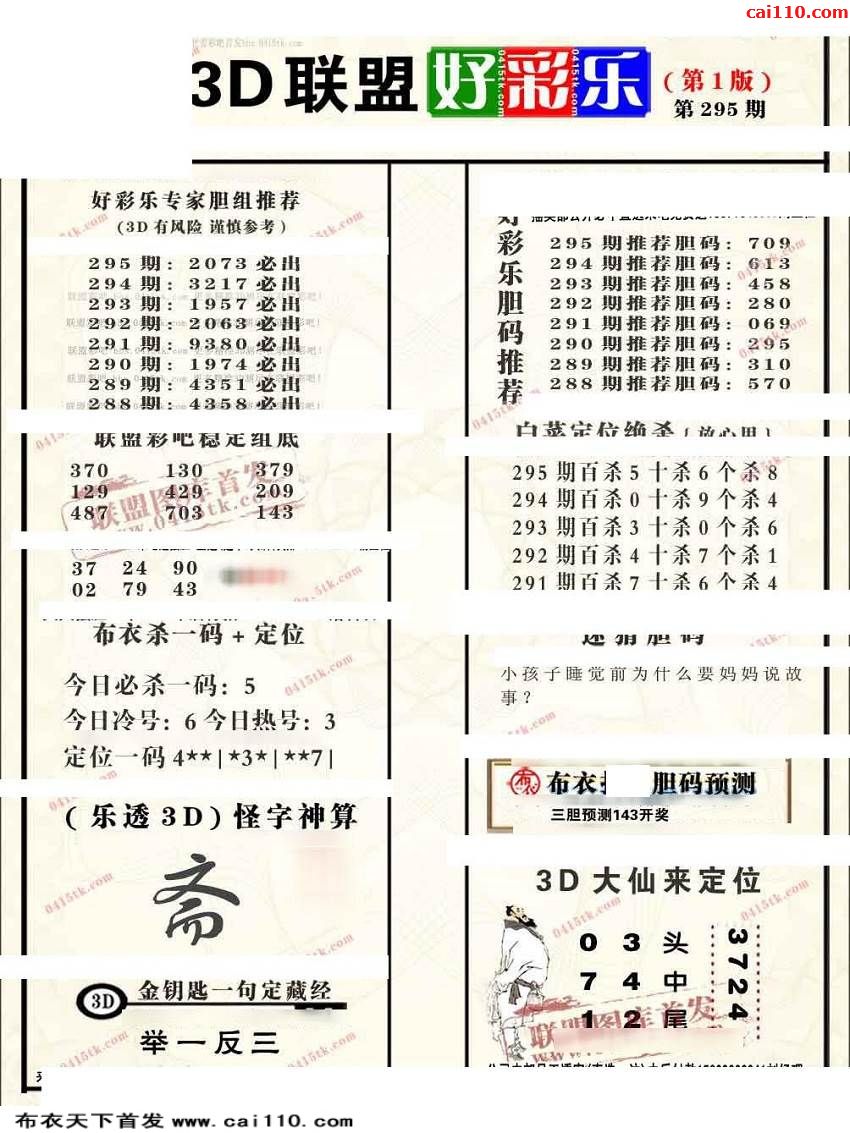 cai110.com
3D联盟 好彩乐 (第1版)
第295期
好彩乐专家胆组推荐
(3D有风险 谨慎参考)
295期: 2073必出
294期: 3217必出
293期: 1957必出
292期: 2063必出
291期: 9380必出
290期: 1974必出
289期: 4351必出
288期: 4358必出
联盟彩吧稳定组底
370 130 379
129 429 209
487 703 143
37 24 90
02 79 43
布衣杀一码+定位
今日必杀一码: 5
今日冷号: 6 今日热号: 3
定位一码 4**|*3*|**7|
(乐透3D)怪字神算
斋
3D 金钥匙一句定藏经
举一反三
好彩乐胆码推荐
295期推荐胆码: 709
294期推荐胆码: 613
293期推荐胆码: 458
292期推荐胆码: 280
291期推荐胆码: 069
290期推荐胆码: 295
289期推荐胆码: 310
288期推荐胆码: 570
白菜定位绝杀(放心用)
295期百杀5十杀6个杀8
294期百杀0十杀9个杀4
293期百杀3十杀0个杀6
292期百杀4十杀7个杀1
291期百杀7十杀6个杀4
迷猜胆码
小孩子睡觉前为什么要妈妈说故
事?
布衣 胆码预测
三胆预测143开奖
3D大仙来定位
0 3 头
7 4 中
1 2 尾
3724
联盟图库首发
www.0415tk.com
0415tk.com
布衣天下首发 www.cai110.com